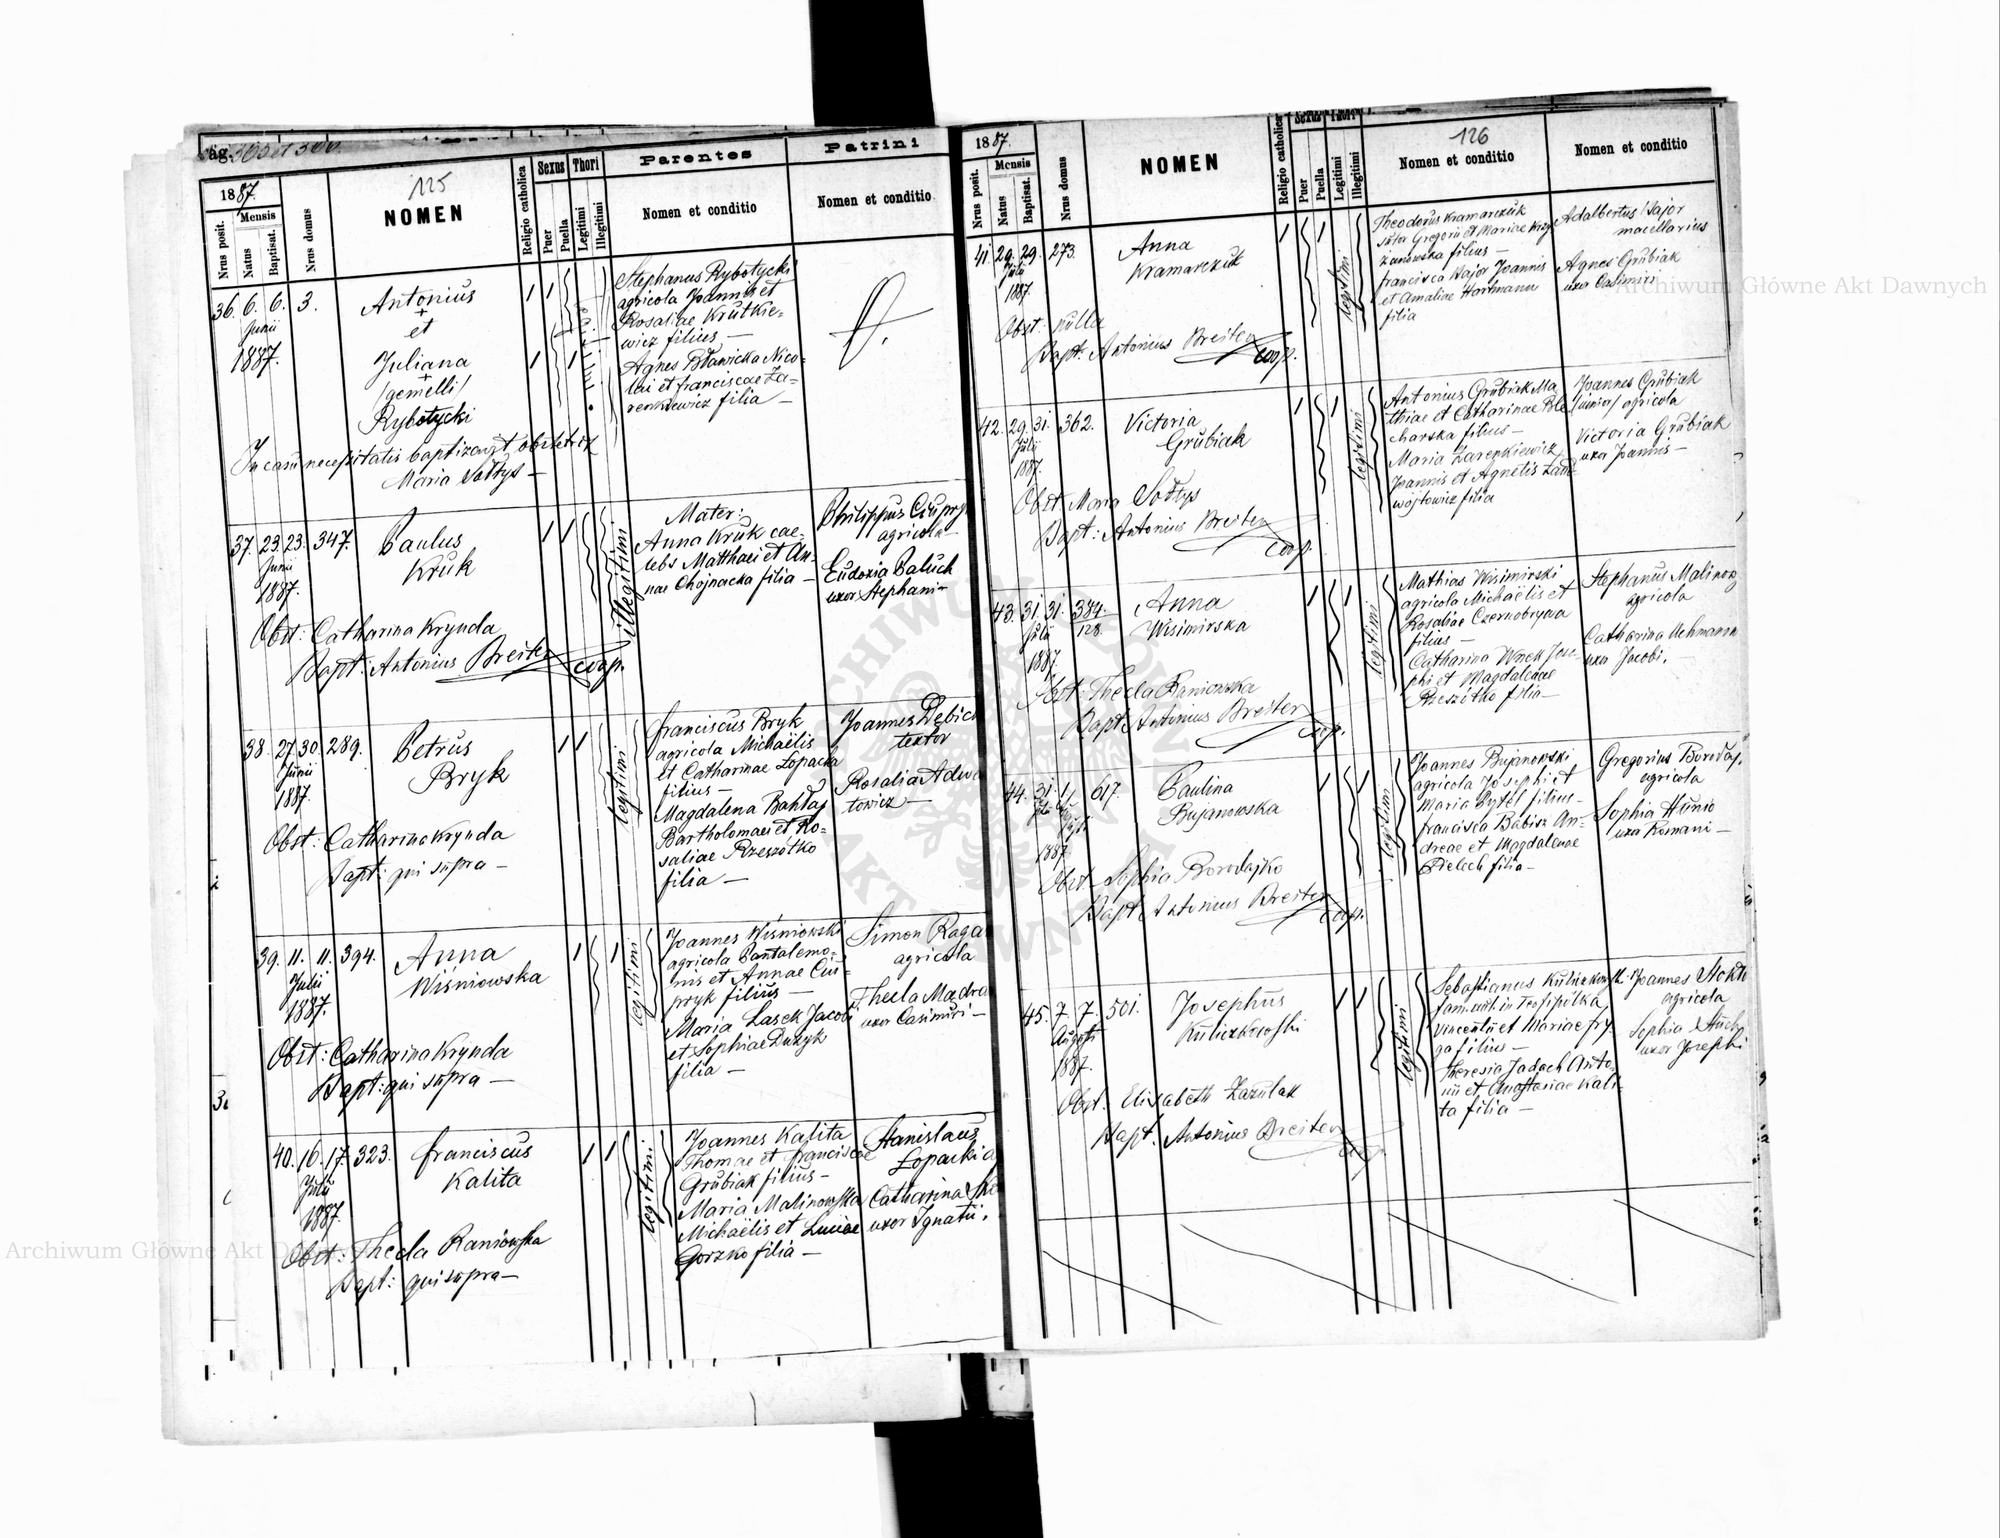 pag. 365 et 366.
1887.
125
Parentes
Patrini
Nrus posit.
Mensis
Natus
Baptisat.
Nrus domus
NOMEN
Religio catholica
Sexus
Puer
Puella
Thori
Legitimi
Illegitimi
Nomen et conditio
Nomen et conditio
36. 6. 6. 3.
Junii
1887.
Antonius
+
et
Juliana
+
/gemelli/
Rybotycki
Stephanus Rybotycki
agricola Joannis et
Rosaliae Krutkie-
wicz filius —
Agnes Bławicka Nico-
lai et Franciscae Za-
renkiewicz filia —
In casu necessitatis baptizavit obstetrix
Maria Sołtys —
37. 23. 23. 347.
Junii
1887.
Paulus
Kruk
illegitimi
Mater:
Anna Kruk cae-
lebs Matthaei et An-
nae Chojnacka filia —
Philippus Ciupry
agricola
Eudoxia Paluch
uxor Stephani —
Obst: Catharina Krynda
Bapt: Antonius Breiter coop.
38. 27. 30. 289.
Junii
1887.
Petrus
Bryk
legitimi
Franciscus Bryk
agricola Michaëlis
et Catharinae Łopacka
filius —
Magdalena Bahdaj
Bartholomaei et Ro-
saliae Rzeszótko
filia —
Joannes Dębic
textor
Rosalia Adwa
towicz —
Obst: Catharina Krynda
Bapt: qui supra —
39. 11. 11. 394.
Julii
1887.
Anna
Wiśniowska
legitimi
Joannes Wiśniowski
agricola Pantalemo-
nis et Annae Ciu-
pryk filius —
Maria Lasek Jacobi
et Sophiae Duzyk
filia —
Simon Raga
agricola
Thecla Mądra
uxor Casimiri —
Obst: Catharina Krynda
Bapt: qui supra —
40. 16. 17. 323.
Julii
1887.
Franciscus
Kalita
legitimi
Joannes Kalita
Thomae et Franciscae
Grubiak filius —
Maria Malinowska
Michaëlis et Luciae
Gorzko filia —
Stanislaus
Łopacki
Catharina
uxor Ignatii.
Obst: Thecla Raniowska
Bapt: qui supra —
1887.
126
Nrus posit.
Mensis
Natus
Baptisat.
Nrus domus
NOMEN
Religio catholica
Sexus
Puer
Puella
Thori
Legitimi
Illegitimi
Nomen et conditio
Nomen et conditio
41. 29. 29. 273.
Julii
1887.
Anna
Kramarczuk
legitimi
Theodorus Kramarczuk
sutor Gregorii et Mariae Krzy
zanowska filius —
Francisca Major Joannis
et Amaliae Hartmann
filia
Adalbertus Major
macellarius
Agnes Grubiak
uxor Casimiri
Obst: nulla
Bapt: Antonius Breiter coop.
42. 29. 31. 362.
Julii
1887.
Victoria
Grubiak
legitimi
Antonius Grubiak Ma
thiae et Catharinae Ble
charska filius —
Maria Zarenkiewicz
Joannis et Agnetis Zan
wójtowicz filia
Joannes Grubiak
/iunior/ agricola
Victoria Grubiak
uxor Joannis —
Obst Maria Sołtys
Bapt: Antonius Breiter
coop.
43. 31. 31. 384/128.
Julii
1887.
Anna
Wisimirska
legitimi
Mathias Wisimirski
agricola Michaëlis et
Rosaliae Czernobrywa
filius —
Catharina Wnek Jose-
phi et Magdalenae
Rzeszótko filia —
Stephanus Malinow
agricola
Catharina Uchmann
uxor Jacobi. —
Obst: Thecla Raniowska
Bapt: Antonius Breiter
coop.
44. 31. 1. 617.
1887
Paulina
Bujanowska
legitimi
Joannes Bujanowski
agricola Josephi et
Maria Pytel filius —
Francisca Babisz An-
dreae et Magdalenae
Pielech filia —
Gregorius Borodaj.
agricola
Sophia Hunio
uxor Romani —
Obst — Sophia Borodajko
Bapt Antonius Breiter
coop.
45. 7. 7. 501.
Augusti
1887.
Josephus
Kuliczkowski
legitimi
Sebastianus Kuliczkowski
fam. aul. in Teofipólka
Vincentii et Mariae Fry
ga filius —
Theresia Jadach Anto-
nii et Anastasiae Kali-
ta filia —
Joannes
agricola
Sophia
uxor Josephi
Obst. Elisabeth Zazulak
Bapt. Antonius Breiter
coop.
Archiwum Główne Akt Dawnych
Archiwum Główne Akt Dawnych
ARCHIWUM GŁÓWNE AKT DAWNYCH